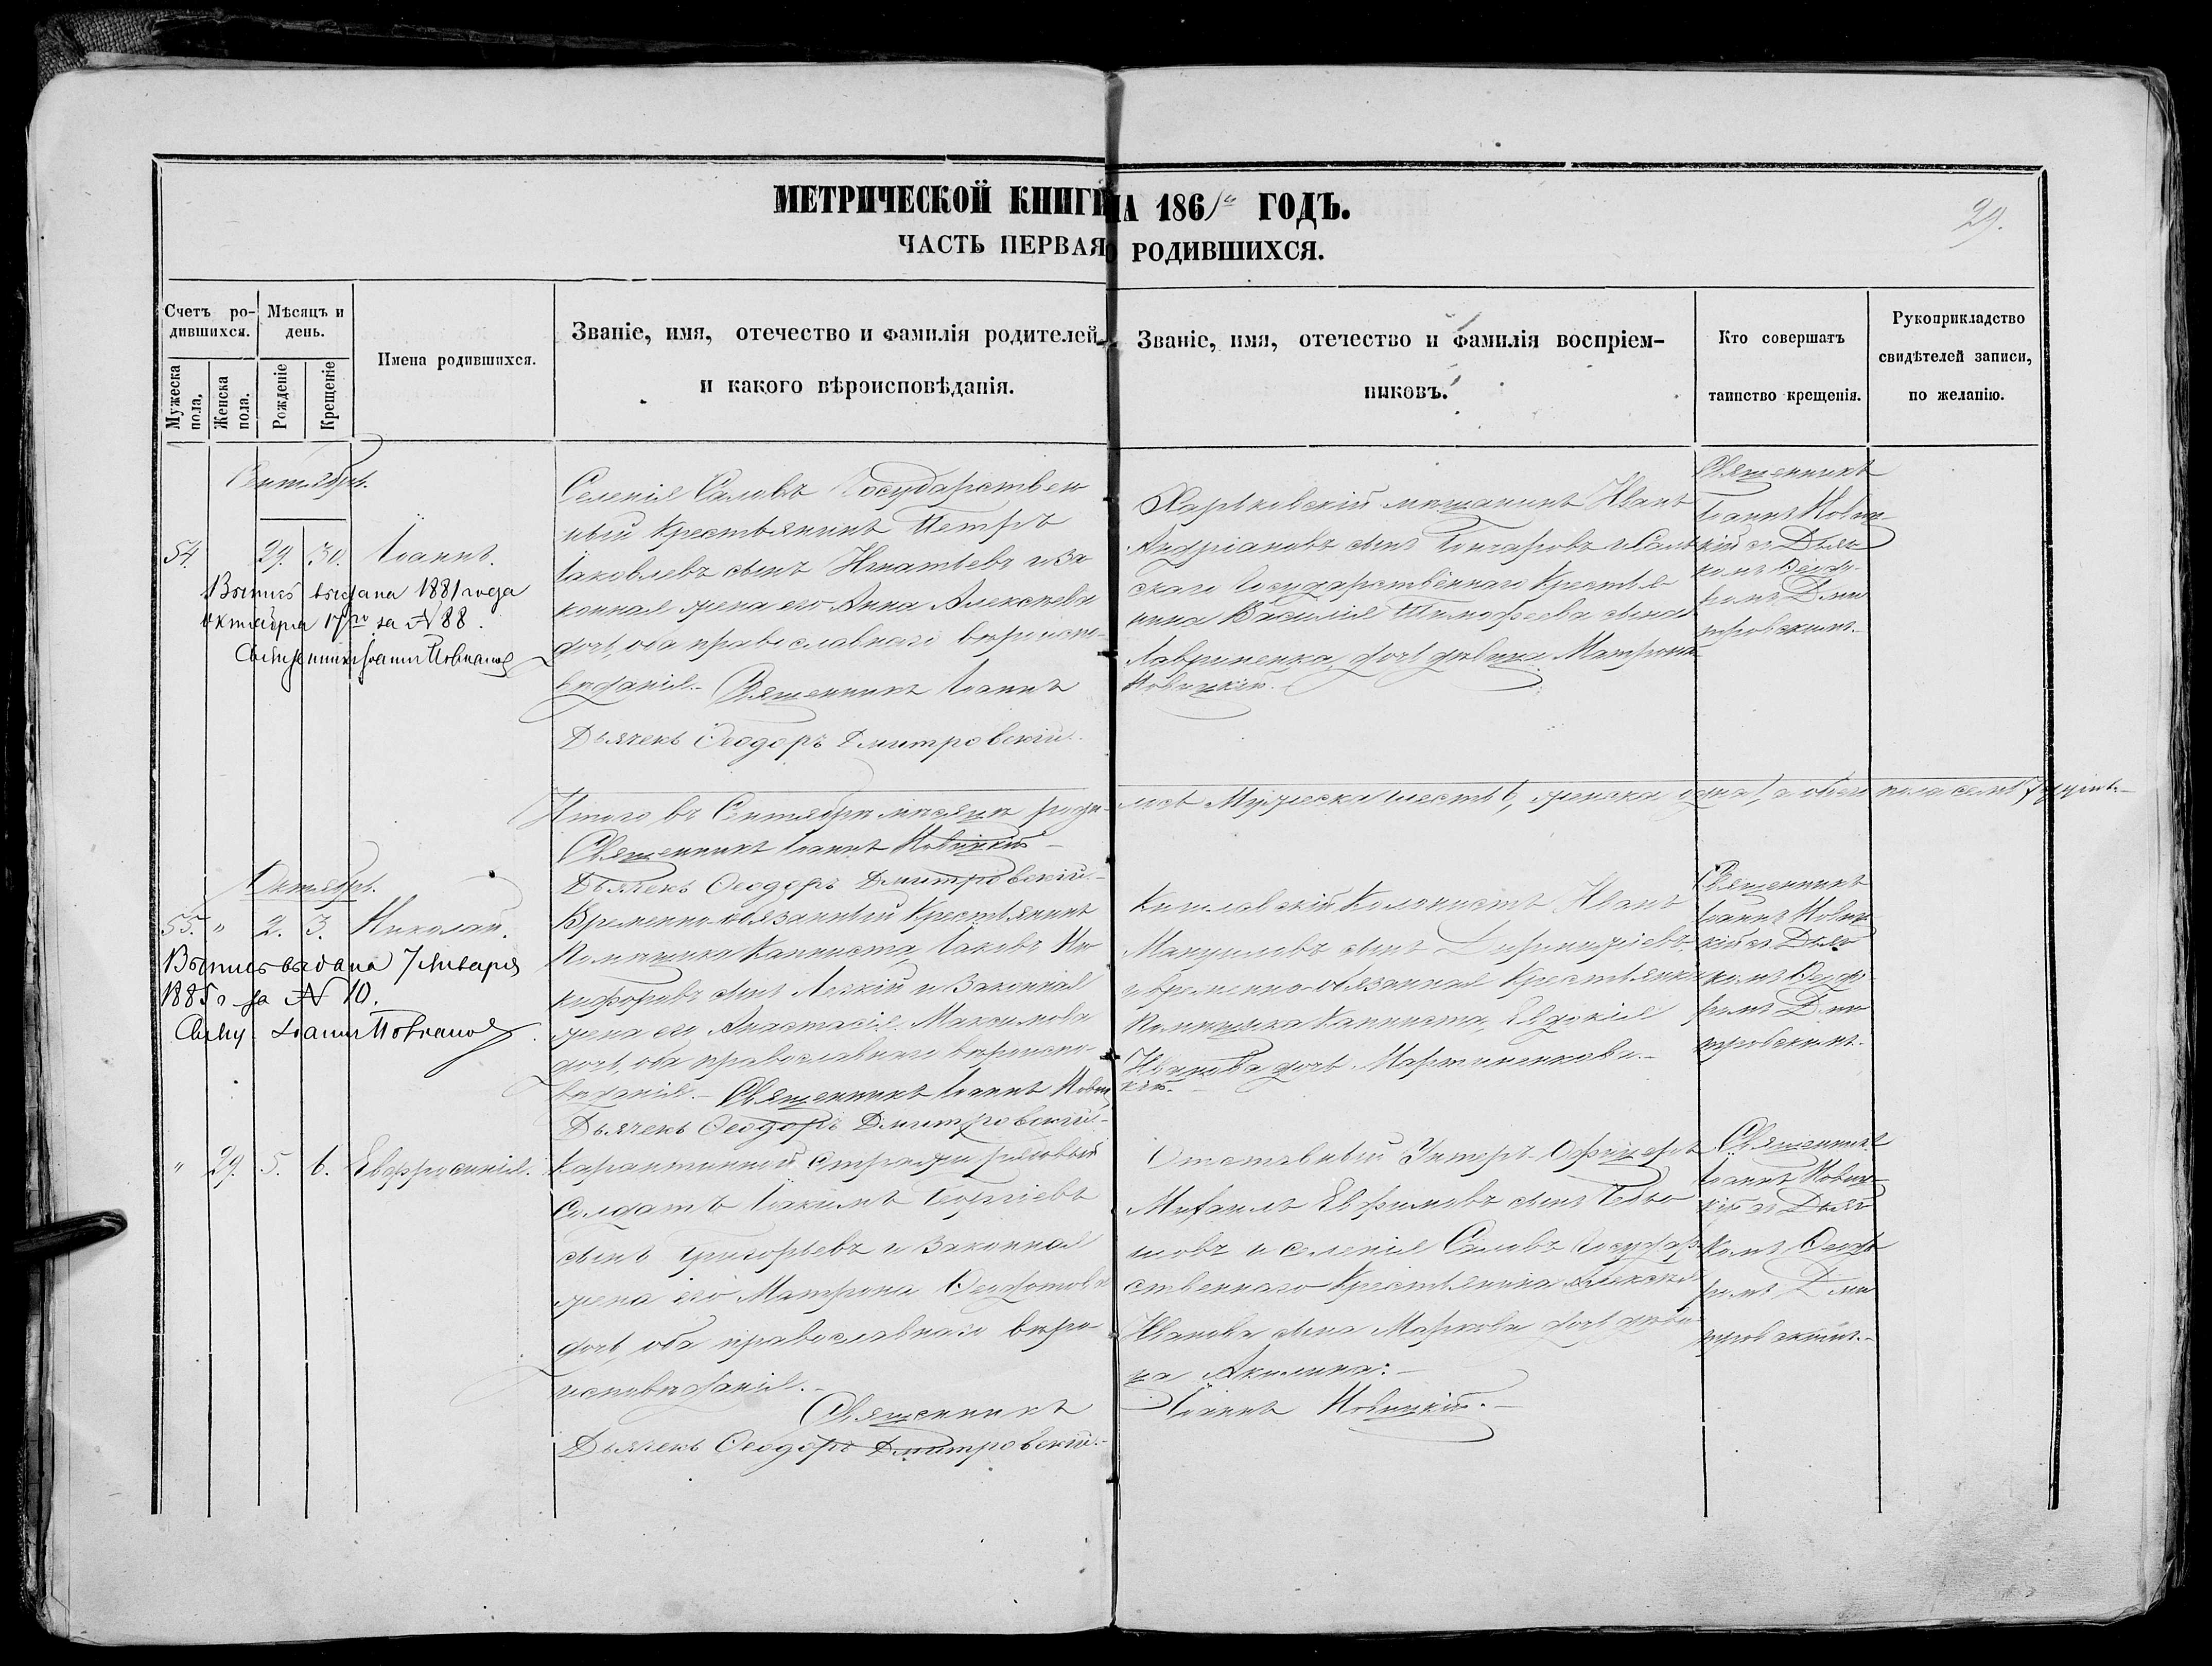 МЕТРИЧЕСКОЙ КНИГИ НА 1861го ГОДЪ.
29.
ЧАСТЬ ПЕРВАЯ О РОДИВШИХСЯ.
Счетъ ро-
дившихся.
Мужеска пола.
Женска пола.
Мѣсяцъ и
день.
Рожденіе
Крещеніе
Имена родившихся.
Званіе, имя, отечество и фамилія родителей,
и какого вѣроисповѣданія.
Званіе, имя, отечество и фамилія воспріем-
никовъ.
Кто совершатъ
таинство крещенія.
Рукоприкладство
свидѣтелей записи,
по желанію.
Сентябрь.
54. 29. 30. Іоаннъ.
Выпись выдана 1881 года
октября 17го за № 88.
Священникъ Іоаннъ
Селенія Саловъ Государствен
ный Крестьянинъ Петръ
Іаковлевъ сынъ Игнатьевъ и за
конная жена его Анна Алексѣева
дочь, оба православнаго вѣроиспо-
вѣданія. Священникъ Іоаннъ
Дьячекъ Ѳеодоръ Дмитровскій.
Харьковскій мѣщанинъ Иванъ
Андріановъ сынъ Гончаровъ и
скаго Государственнаго Крестья
нина Василія Тимофеева сына
Лавриненка, дочь дѣвица Матрона
Новицкій.
Священникъ
Іоаннъ Новиц-
кій съ Дьяч
комъ Ѳеодо-
ромъ Дми
тровскимъ.
Итого въ Сентябрѣ мѣсяцѣ роди-
лось Мужеска шесть 6, женска одна 1, а обоего пола семь 7 душъ.
Священникъ Іоаннъ Новицкій
Дьячекъ Ѳеодоръ Дмитровскій.
Октябрь.
55. " 2. 3. Николай.
Выпись выдана 7 Января
1885 г за № 10.
Свящ. Іоаннъ
Временно-обязанный Крестьянинъ
Помѣщика Капниста, Іаковъ Ни
кифоровъ сынъ Легкій и Законная
жена его Анастасія Максимова
дочь, оба православнаго вѣроиспо-
вѣданія. Священникъ Іоаннъ Новиц
кій.
Дьячекъ Ѳеодоръ Дмитровскій.
Колонистъ Иванъ
Мануиловъ сынъ
и временно-обязанная Крестьянка
Помѣщика Капниста, Евдокія
Иванова дочь Мартиненкова.
Священникъ
Іоаннъ Новиц
кій съ Дьяч
комъ Ѳеодо
ромъ Дми
тровскимъ.
" 29. 5. 6. Евфросинія.
Карантинной Стражи рядовый
Солдатъ Іакимъ Георгіевъ
сынъ Григорьевъ и Законная
жена его Матрона Ѳедотова
дочь, оба православнаго вѣро-
исповѣданія.
Священникъ
Дьячекъ Ѳеодоръ Дмитровскій.
Отставный Унтеръ-Офицеръ
Михаилъ Евфимовъ сынъ
и селенія Саловъ Государ
ственнаго Крестьянина Алексѣя
Иванова сына Маркова дочь дѣви
ца Акилина.
Іоаннъ Новицкій.
Священникъ
Іоаннъ Новиц-
кій съ Дьяч
комъ Ѳеодо
ромъ Дми
тровскимъ.